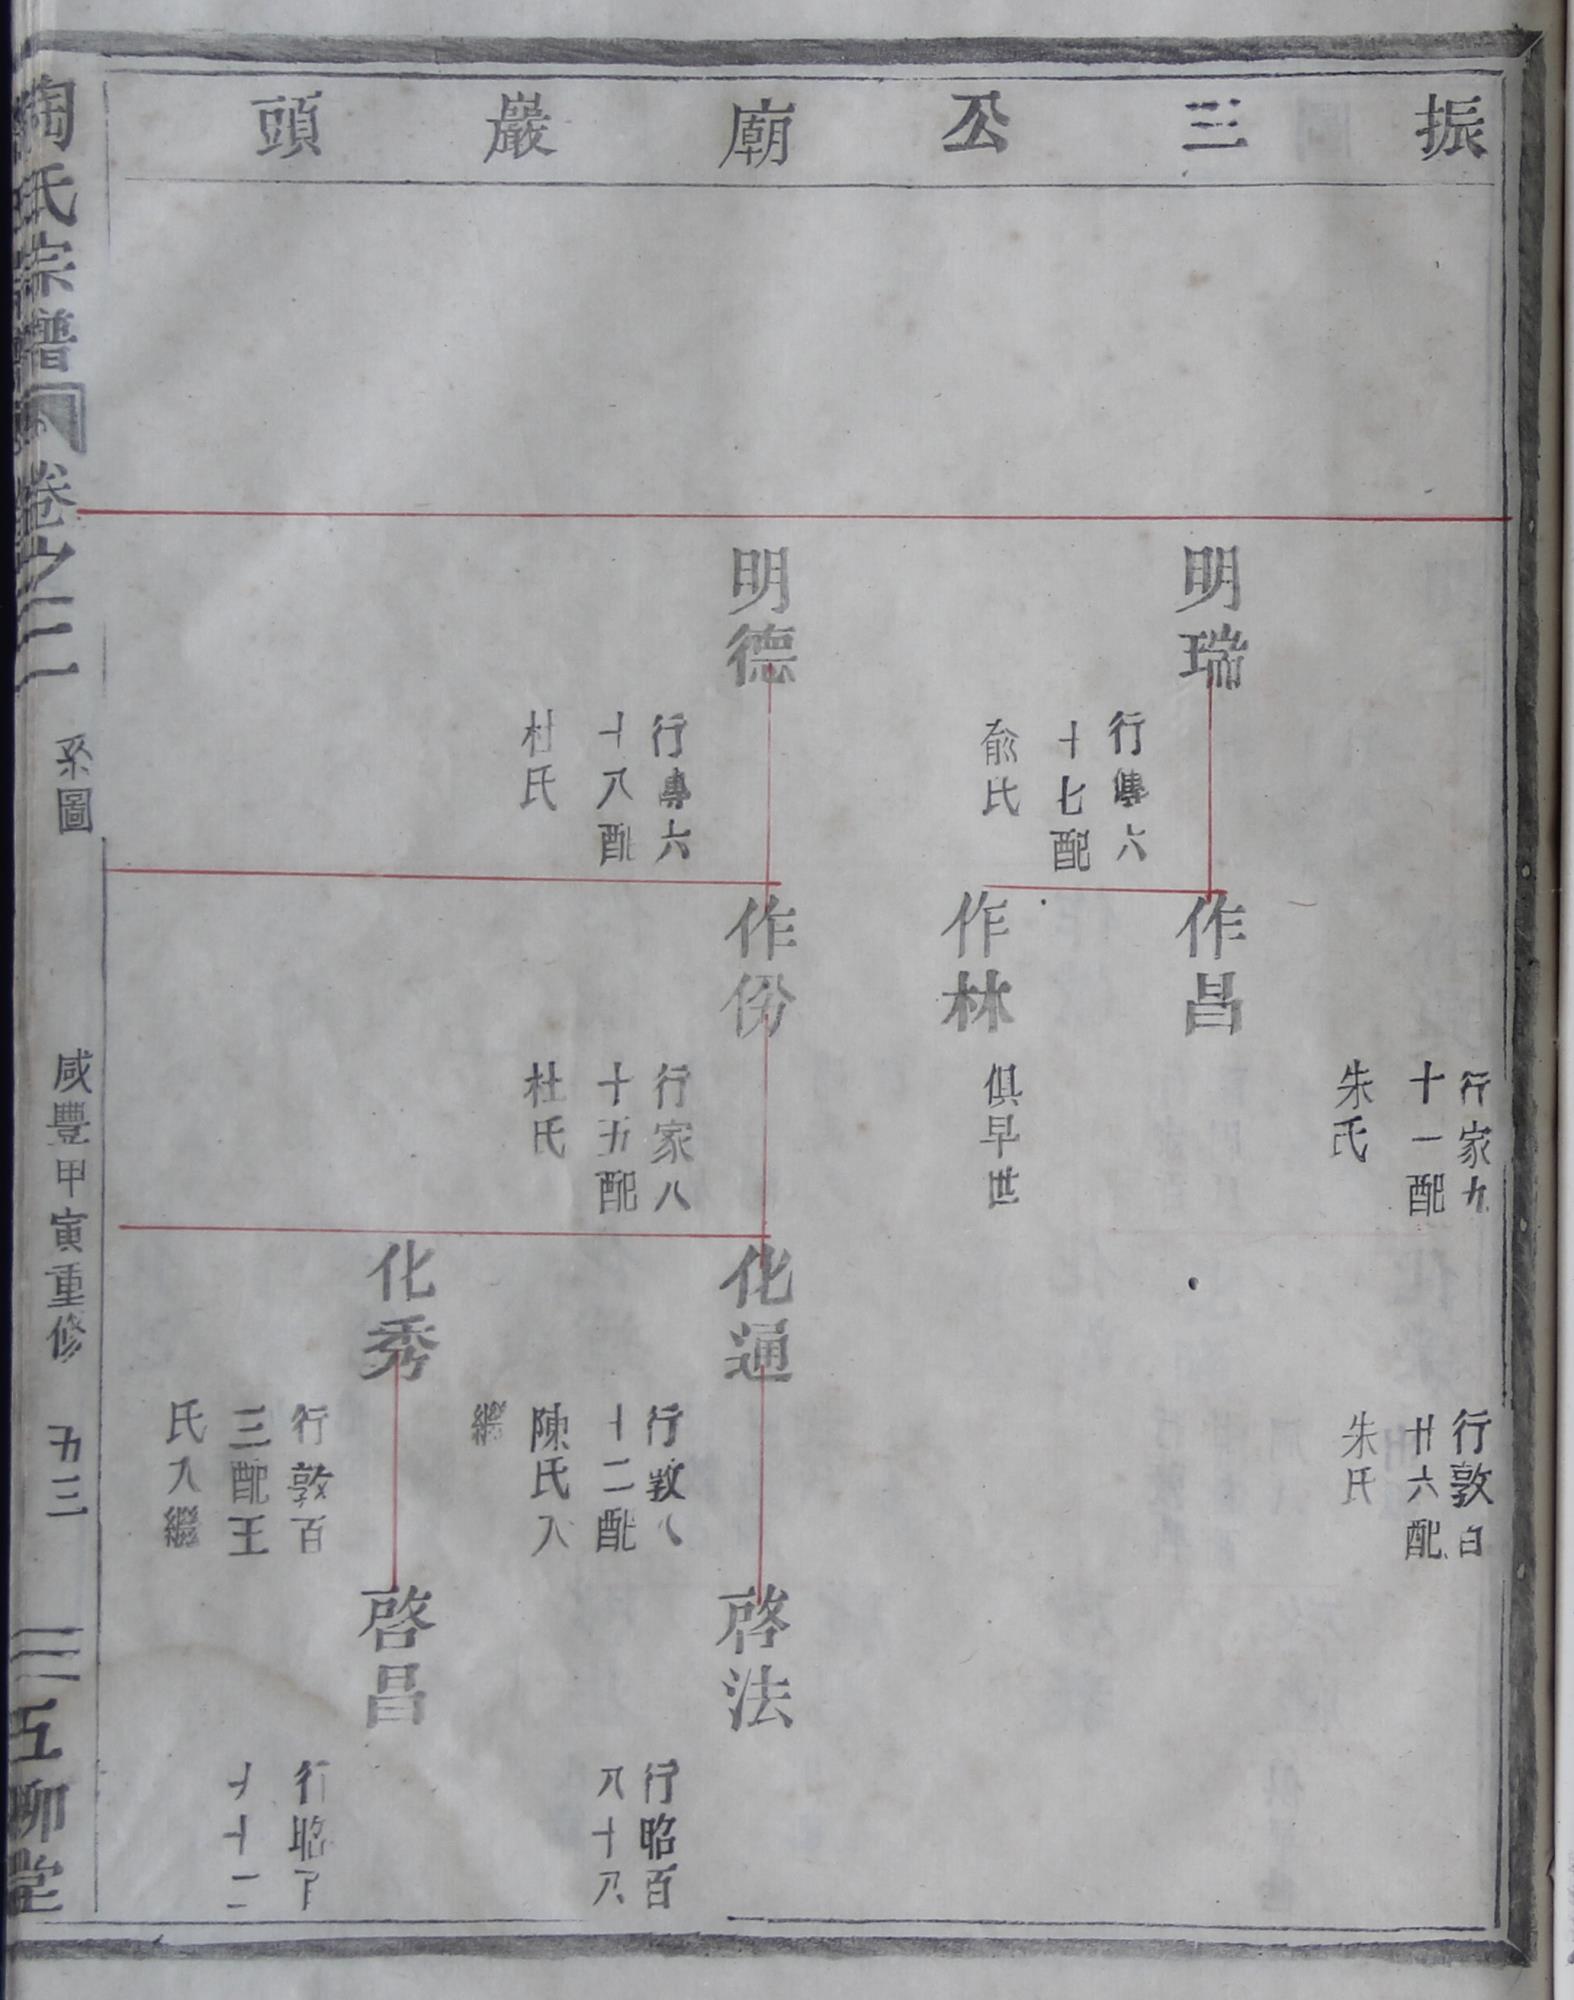 振三公廟巖頭
明瑞
行傳六
十七配
俞氏
明德
行傳六
十八配
杜氏
行家九
十一配
朱氏
作昌
作林
俱早世
作份
行家八
十五配
杜氏
行敦百
廿六配
朱氏
化通
行敦八
十二配
陳氏入
繼
化秀
行敦百
三配王
氏入繼
啓法
行昭百
八十八
啓昌
行昭
十二
陶氏宗譜
卷之二
系圖
咸豐甲寅重修
五三
五柳堂